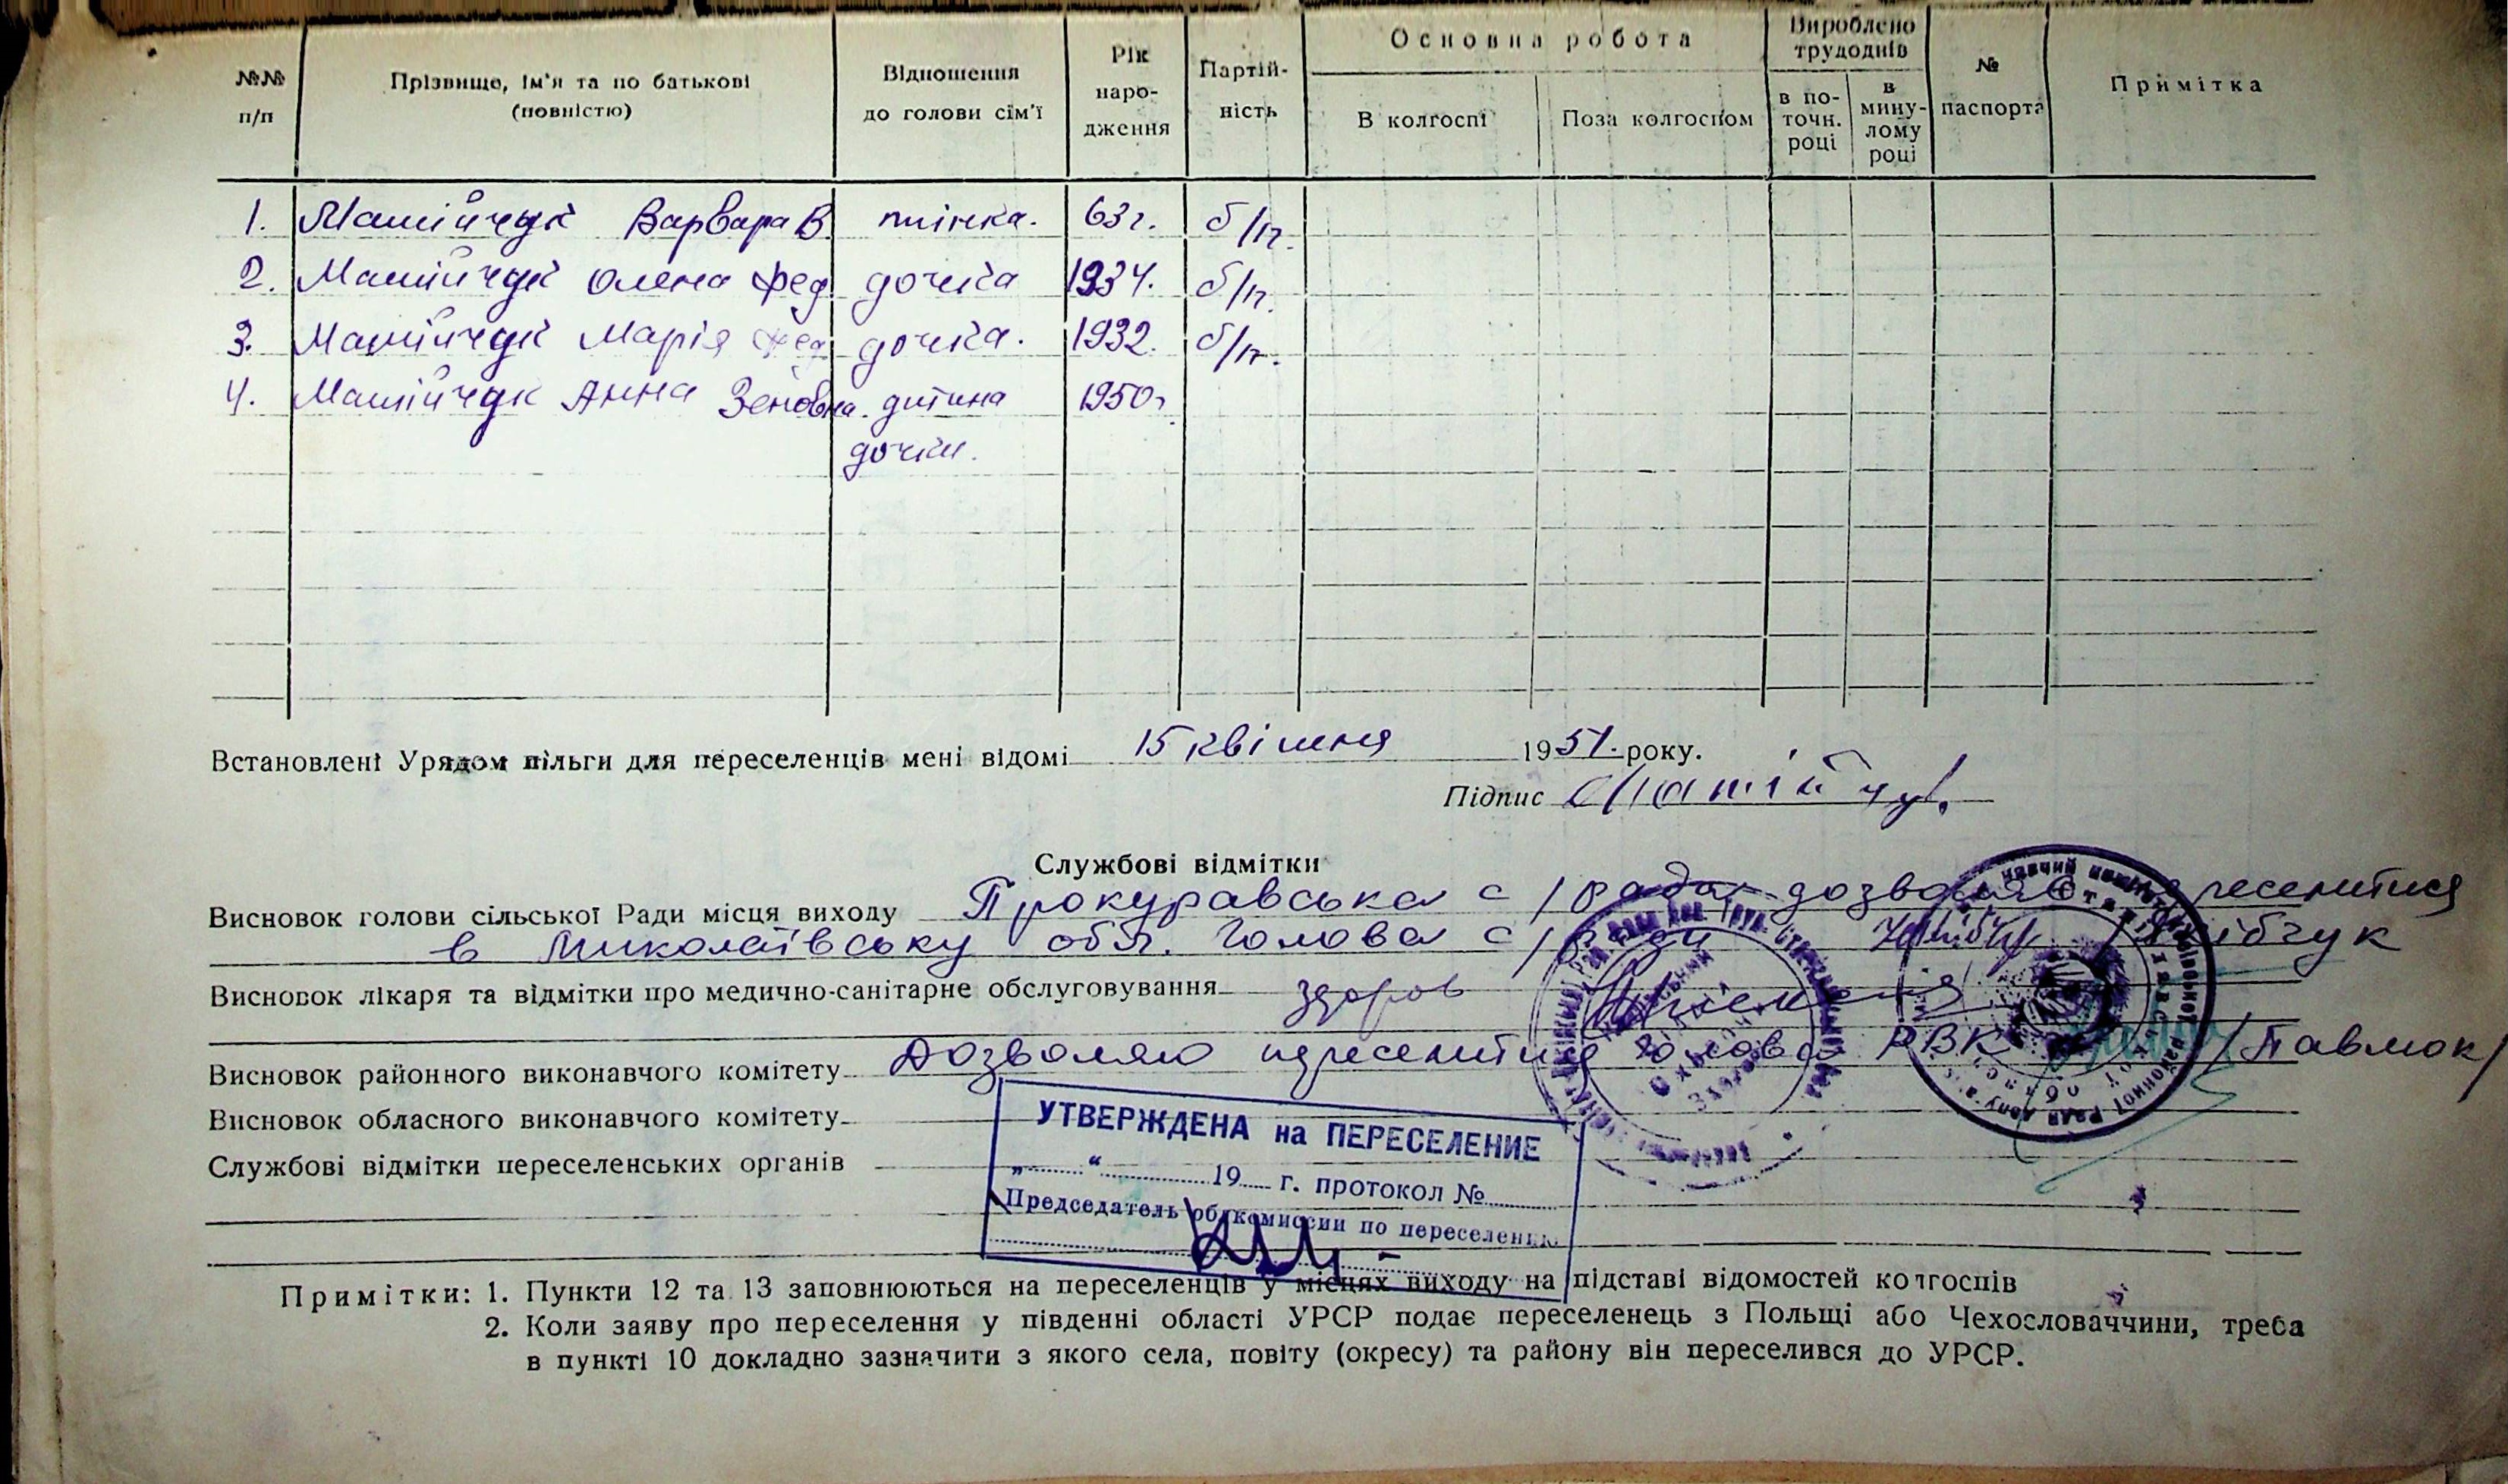 №№ п/п
Прізвище, ім'я та по батькові (повністю)
Відношення до голови сім'ї
Рік народження
Партій-ність
Основна робота
В колгоспі
Поза колгоспом
Вироблено трудоднів
в по-точн. році
в мину-лому році
№ паспорта
Примітка
1. Матійчук Варвара В. жінка. 63 г. б/п.
2. Матійчук Олена Фед. дочка 1934. б/п.
3. Матійчук Марія Фед дочка. 1932. б/п.
4. Матійчук Анна Зеновна. дитина 1950г
дочки.
Встановлені Урядом пільги для переселенців мені відомі 15 квітня 1951. року.
Підпис Матійчу.
Службові відмітки
Висновок голови сільської Ради місця виходу Прокуравська с/рада дозволяє переселитися
в Миколаївську обл. Голова с/ради
Висновок лікаря та відмітки про медично-санітарне обслуговування здоров
Висновок районного виконавчого комітету Дозволяю переселитися Голова РВК /Павлюк/
Висновок обласного виконавчого комітету
УТВЕРЖДЕНА на ПЕРЕСЕЛЕНИЕ
Службові відмітки переселенських органів
„ “ 19 г. протокол №
Председатель обл комиссии по переселению
Примітки: 1. Пункти 12 та 13 заповнюються на переселенців у місцях виходу на підставі відомостей колгоспів
2. Коли заяву про переселення у південні області УРСР подає переселенець з Польщі або Чехословаччини, треба
в пункті 10 докладно зазначити з якого села, повіту (окресу) та району він переселився до УРСР.